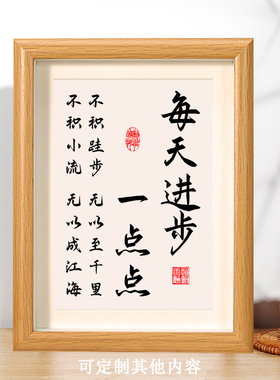 每天进步
一点点
不积跬步 无以至千里
不积小流 无以成江海
可定制其他内容